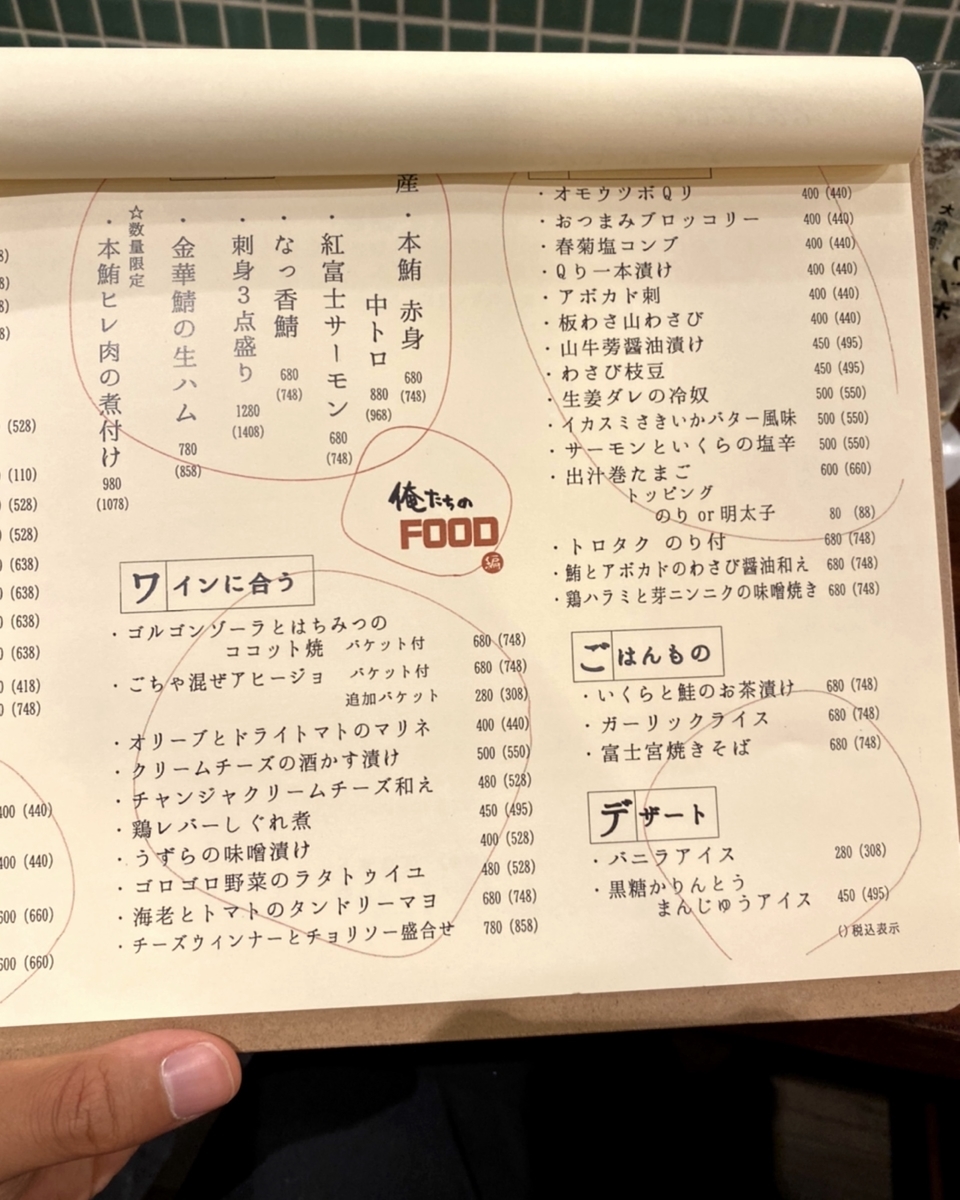 (528)
(110)
(528)
(528)
(638)
(638)
(638)
(638)
(418)
(748)
400 (440)
400 (440)
600 (660)
600 (660)
産
・本鮪 赤身 680 (748)
中トロ 880 (968)
・紅富士サーモン 680 (748)
・なっ香鯖 680 (748)
・刺身3点盛り 1280 (1408)
・金華鯖の生ハム 780 (858)
☆数量限定
・本鮪ヒレ肉の煮付け 980 (1078)
俺たちの
FOOD
編
ワインに合う
・ゴルゴンゾーラとはちみつの
ココット焼 バケット付 680 (748)
・ごちゃ混ぜアヒージョ バケット付 680 (748)
追加バケット 280 (308)
・オリーブとドライトマトのマリネ 400 (440)
・クリームチーズの酒かす漬け 500 (550)
・チャンジャクリームチーズ和え 480 (528)
・鶏レバーしぐれ煮 450 (495)
・うずらの味噌漬け 400 (528)
・ゴロゴロ野菜のラタトゥイユ 480 (528)
・海老とトマトのタンドリーマヨ 680 (748)
・チーズウィンナーとチョリソー盛合せ 780 (858)
・オモウツボQリ 400 (440)
・おつまみブロッコリー 400 (440)
・春菊塩コンブ 400 (440)
・Qり一本漬け 400 (440)
・アボカド刺 400 (440)
・板わさ山わさび 400 (440)
・山牛蒡醤油漬け 450 (495)
・わさび枝豆 450 (495)
・生姜ダレの冷奴 500 (550)
・イカスミさきいかバター風味 500 (550)
・サーモンといくらの塩辛 500 (550)
・出汁巻たまご 600 (660)
トッピング
のり or 明太子 80 (88)
・トロタク のり付 680 (748)
・鮪とアボカドのわさび醤油和え 680 (748)
・鶏ハラミと芽ニンニクの味噌焼き 680 (748)
ごはんもの
・いくらと鮭のお茶漬け 680 (748)
・ガーリックライス 680 (748)
・富士宮焼きそば 680 (748)
デザート
・バニラアイス 280 (308)
・黒糖かりんとう
まんじゅうアイス 450 (495)
()税込表示